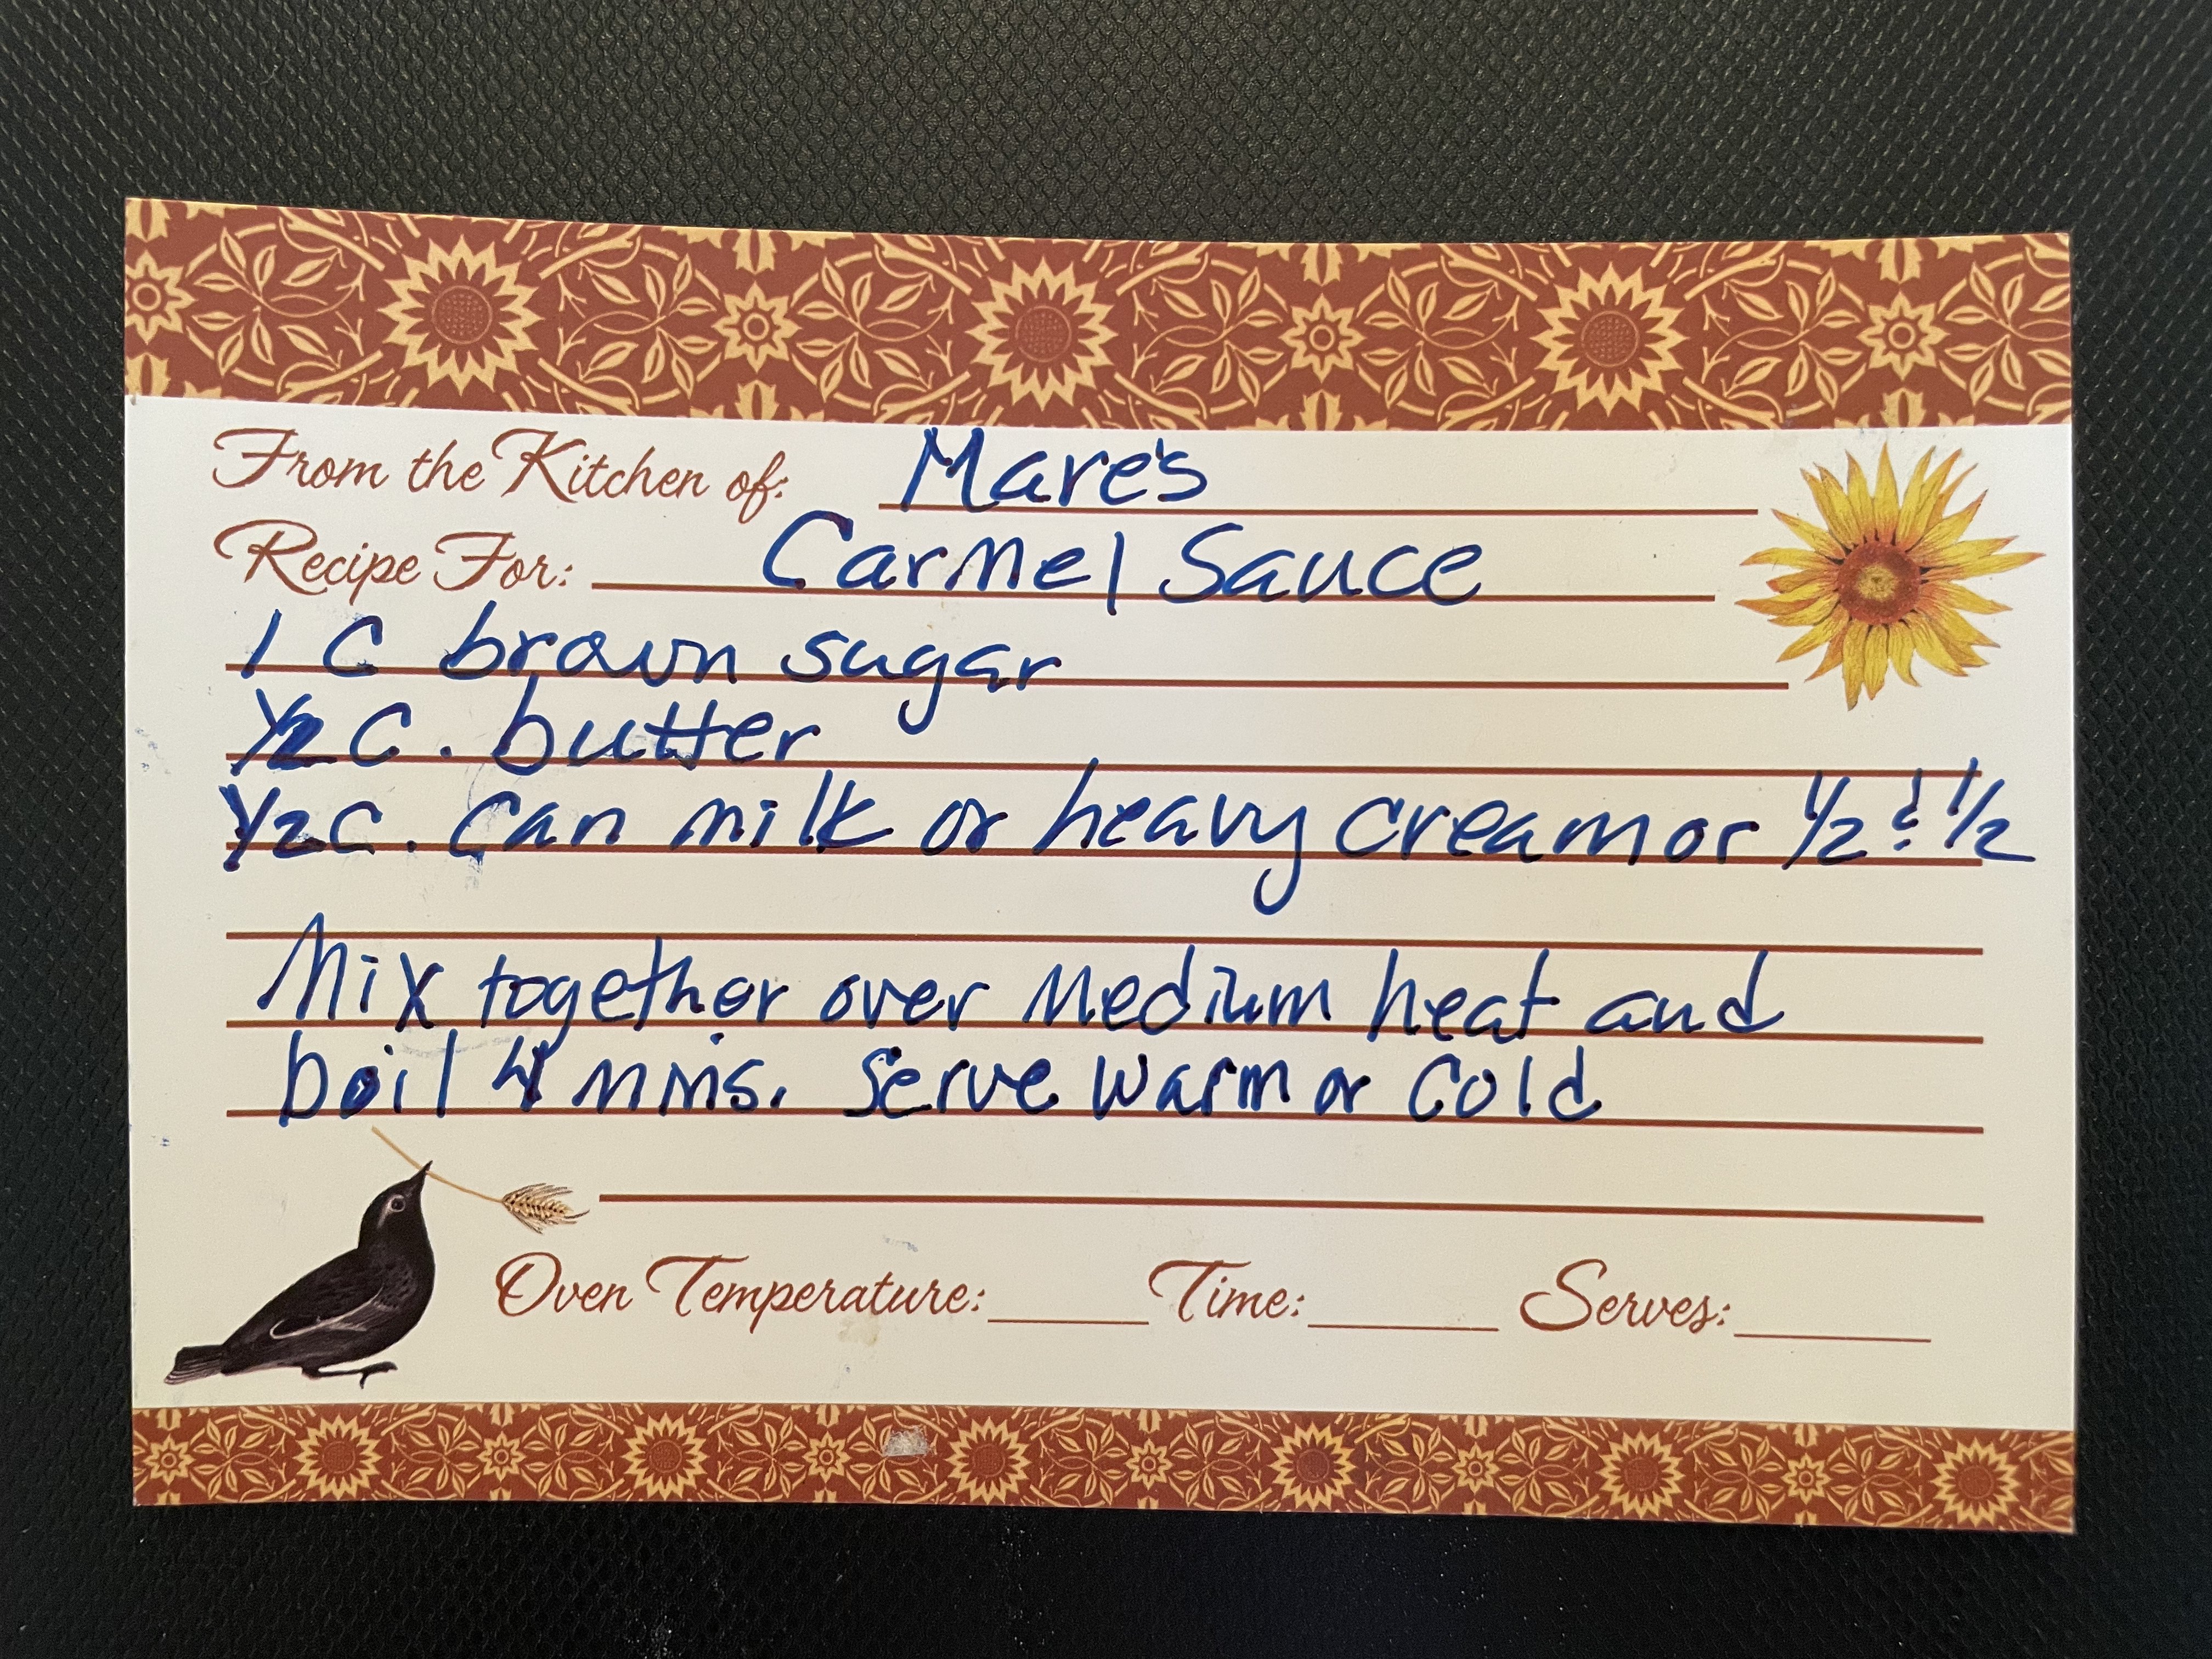 From the Kitchen of: Mare's
Recipe For: Carmel Sauce
1 C brown sugar
1/2 C. butter
1/2 C. Can milk or heavy cream or 1/2 & 1/2
Mix together over medium heat and
boil 4 mins. Serve warm or Cold
Oven Temperature: Time: Serves: